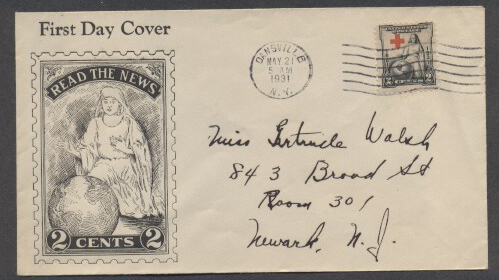 First Day Cover
READ THE NEWS
2 CENTS 2
DANSVILLE
MAY 21
5 AM
1931
N.Y.
2 2
Miss Gertrude Walsh
843 Broad St
Room 301
Newark, N.J.